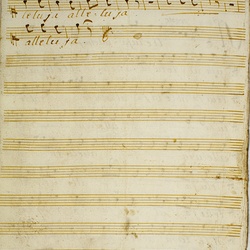 leluja alleluja
alleluja.